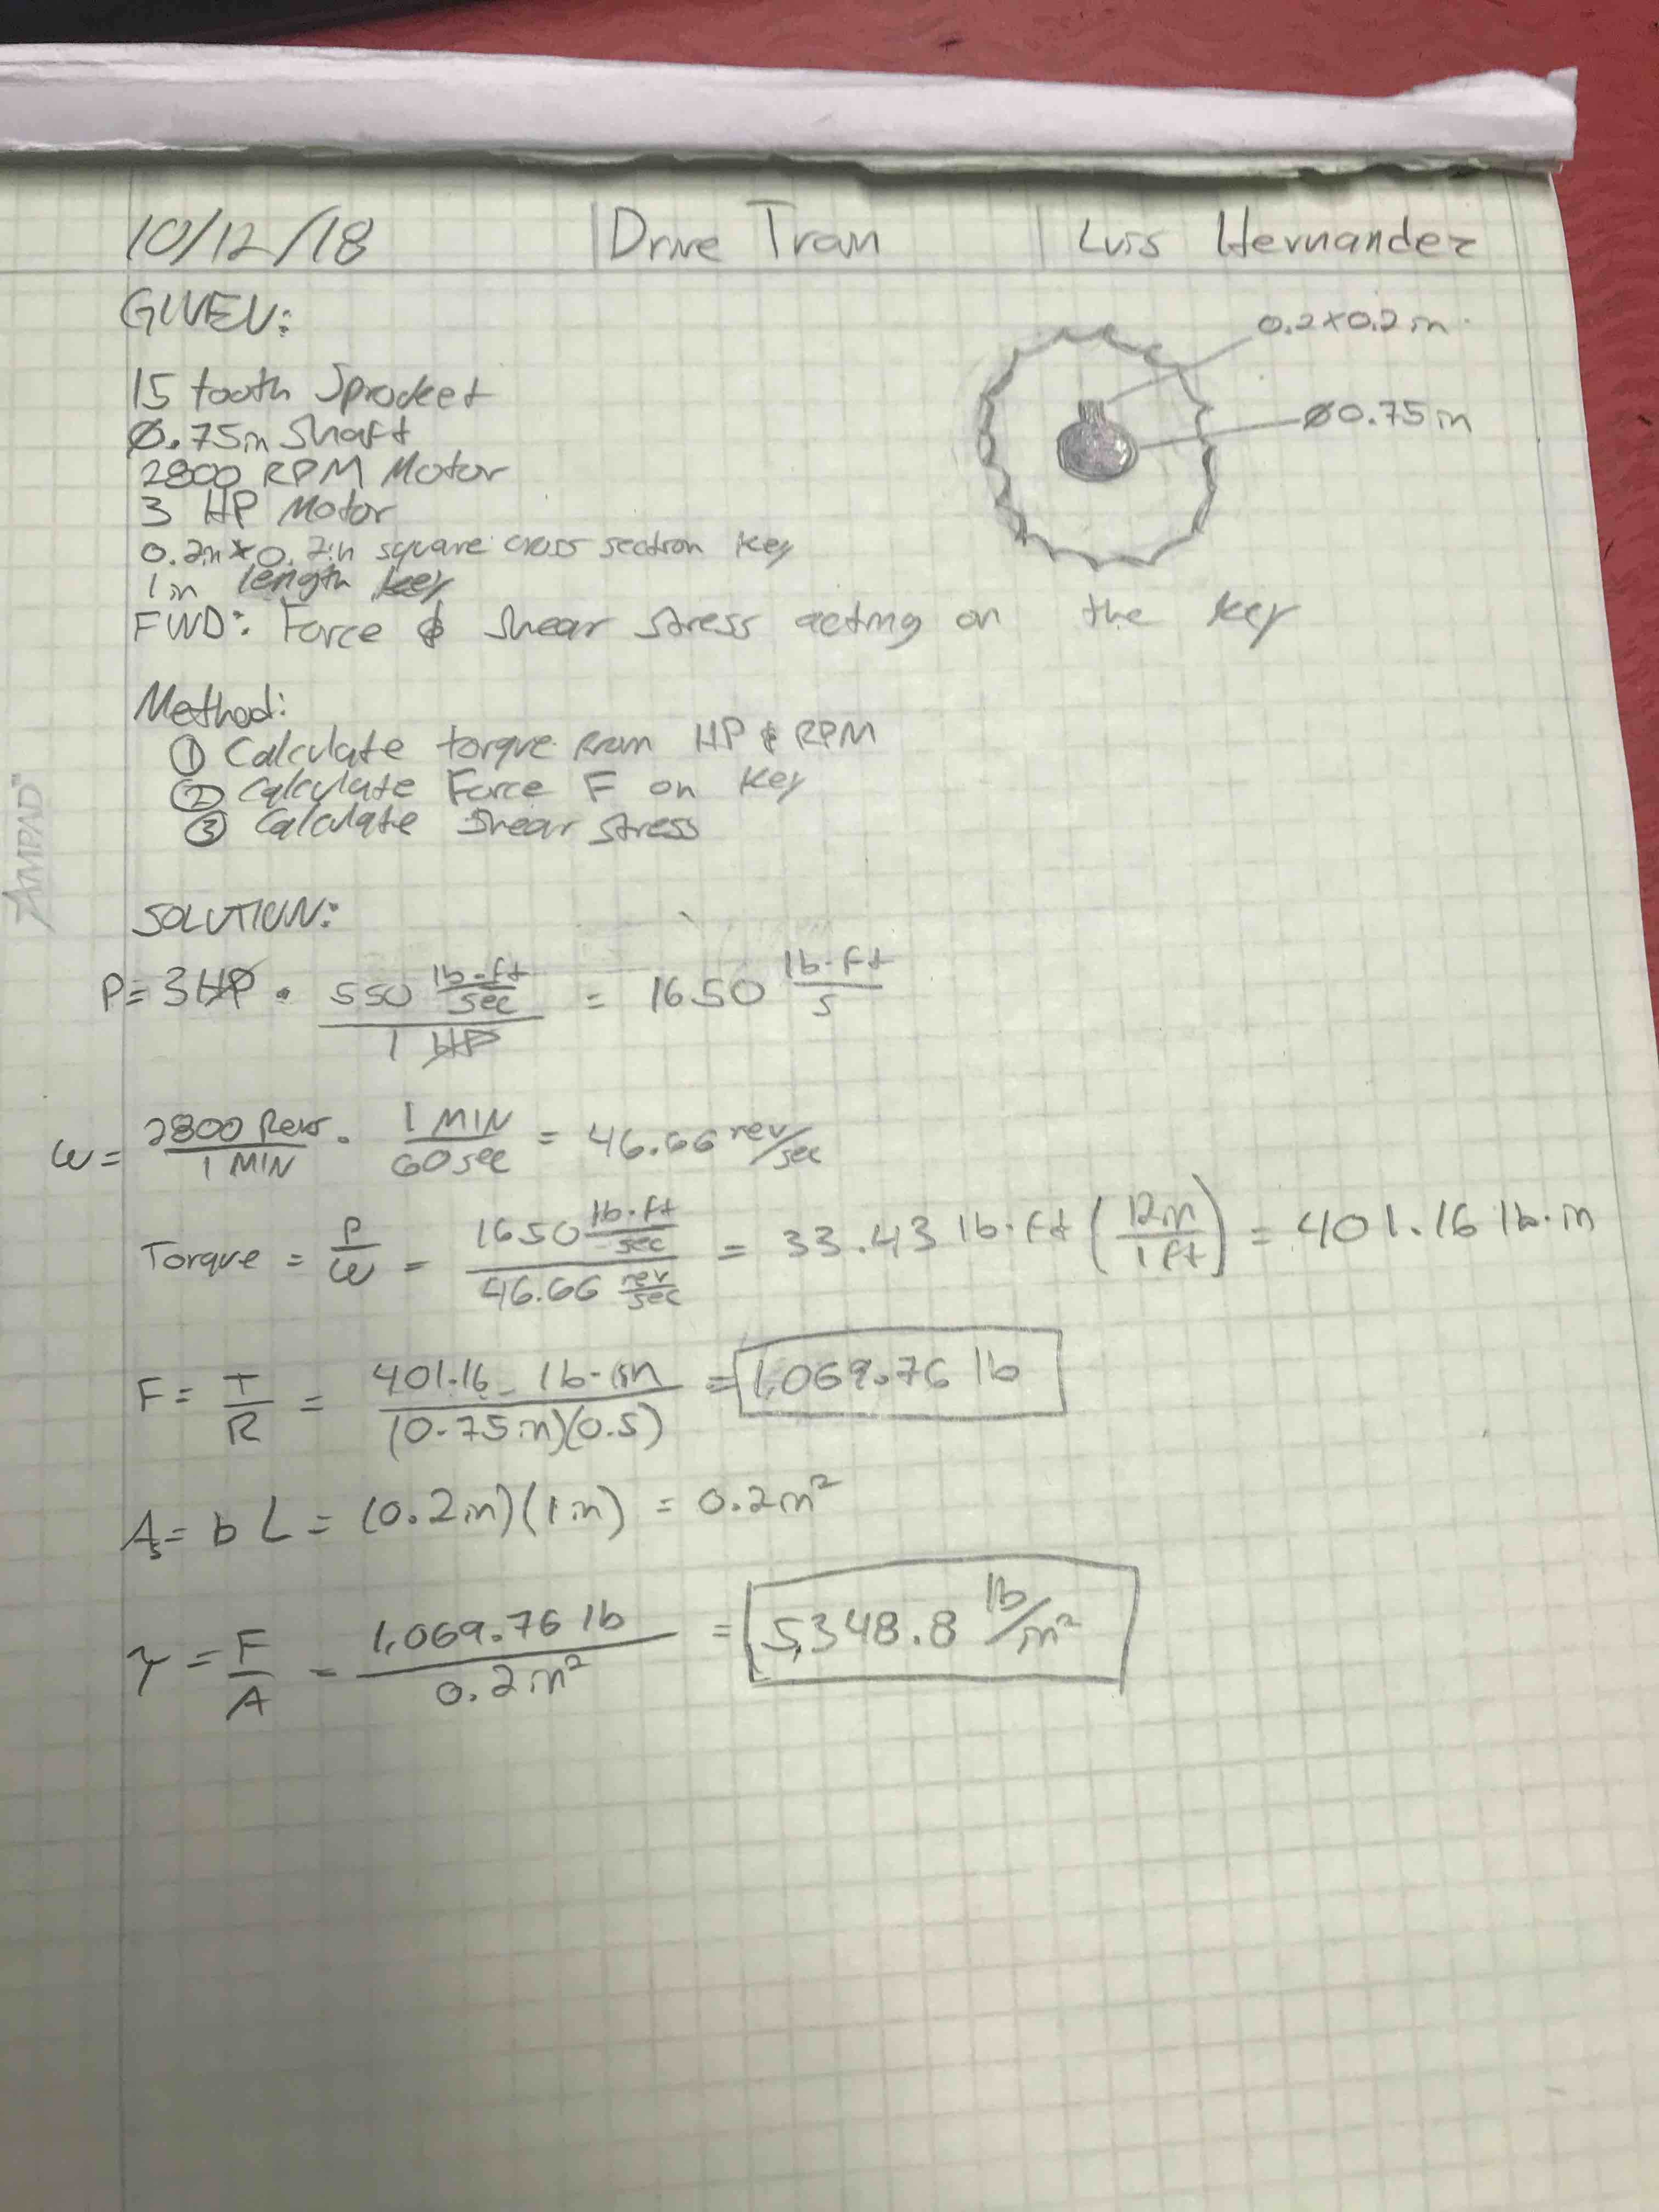 10/12/18 | Drive Train | Luis Hernandez
GIVEN:
0.2x0.2in
15 tooth Sprocket
Ø0.75in
Ø.75in Shaft
2800 RPM Motor
3 HP Motor
0.2in x 0.2in square cross section key
1in length key
FIND: Force & shear stress acting on the key
Method:
① Calculate torque from HP & RPM
② Calculate Force F on key
③ Calculate shear stress
AMPAD"
SOLUTION:
P = 3 HP · 550 lb·ft/sec / 1 HP = 1650 lb·ft/s
ω = 2800 Revs / 1 MIN · 1 MIN / 60 sec = 46.66 rev/sec
Torque = P/ω = 1650 lb·ft/sec / 46.66 rev/sec = 33.43 lb·ft (12in/1ft) = 401.16 lb·in
F = T/R = 401.16 lb·in / (0.75in)(0.5) = 1,069.76 lb
As = bL = (0.2in)(1in) = 0.2in²
τ = F/A = 1,069.76 lb / 0.2in² = 5,348.8 lb/in²